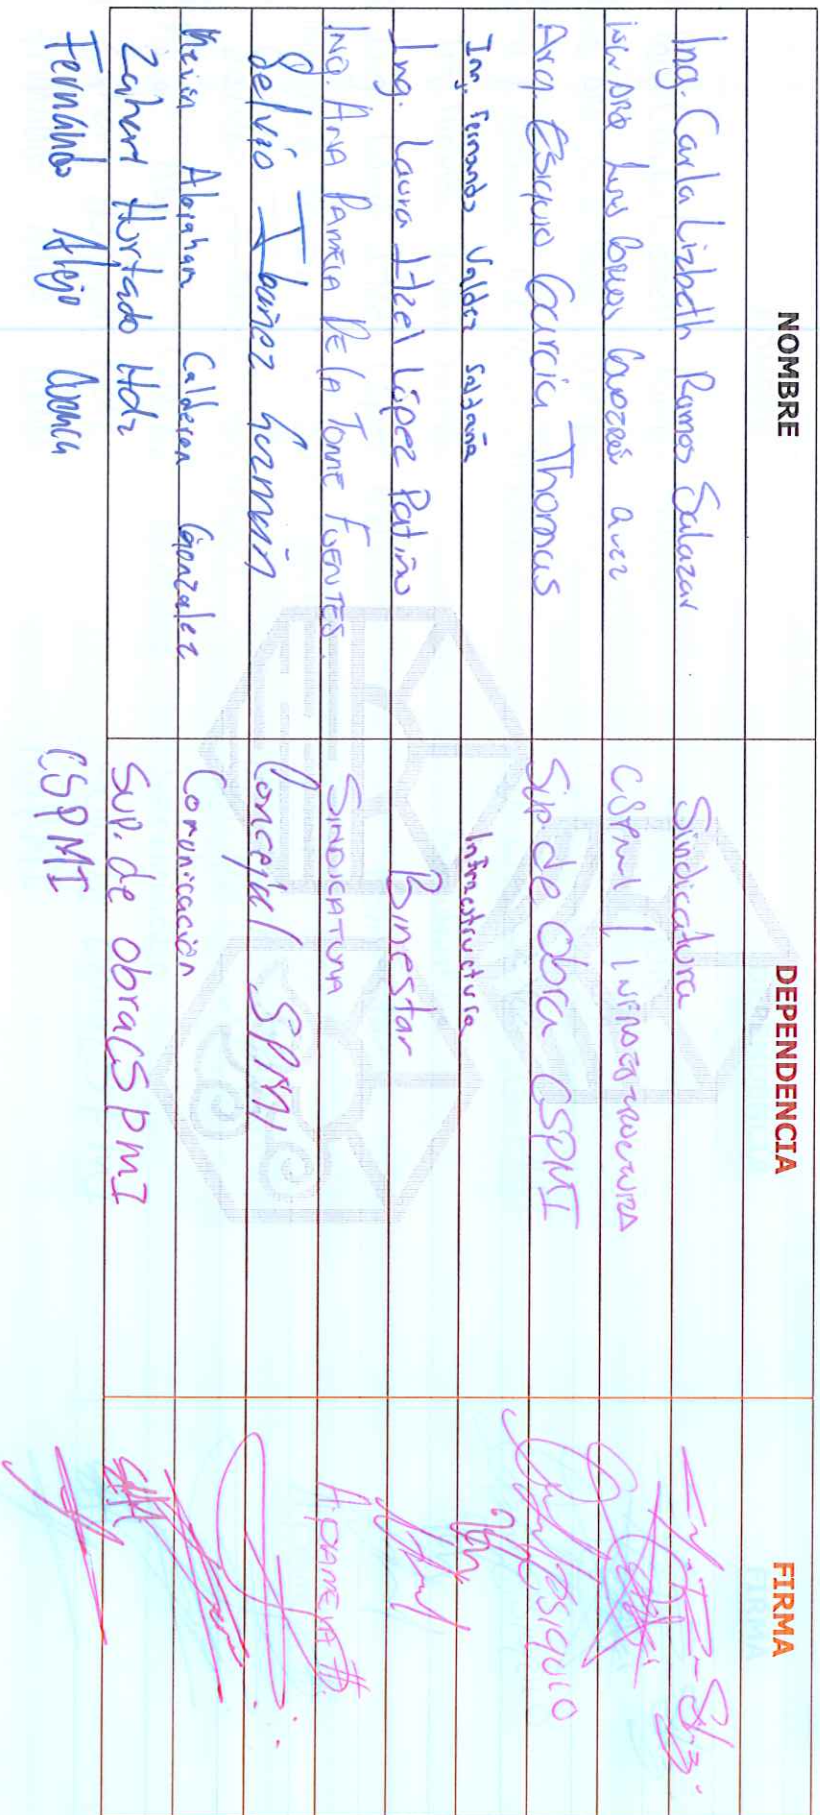 NOMBRE DEPENDENCIA FIRMA
Ing. Carla Lizbeth Ramos Salazar Sindicatura
Luis CSPMI / INFRAESTRUCTURA
Arq. Esiquio García Thomas Sup de obra CSPMI ESIQUIO
Ing. Fernando Valdez Saldaña Infraestructura
Ing. Laura Itzel López Patiño Binestar
ING. ANA PAMELA DE LA TORRE FUENTES SINDICATURA
Selvio Ibañez Guzmán Concejal SPMI
Abraham Calderon Gonzalez Comunicación
Zahert Hurtado Hdz Sup. de obra CSPMI
Fernando Alejo CSPMI